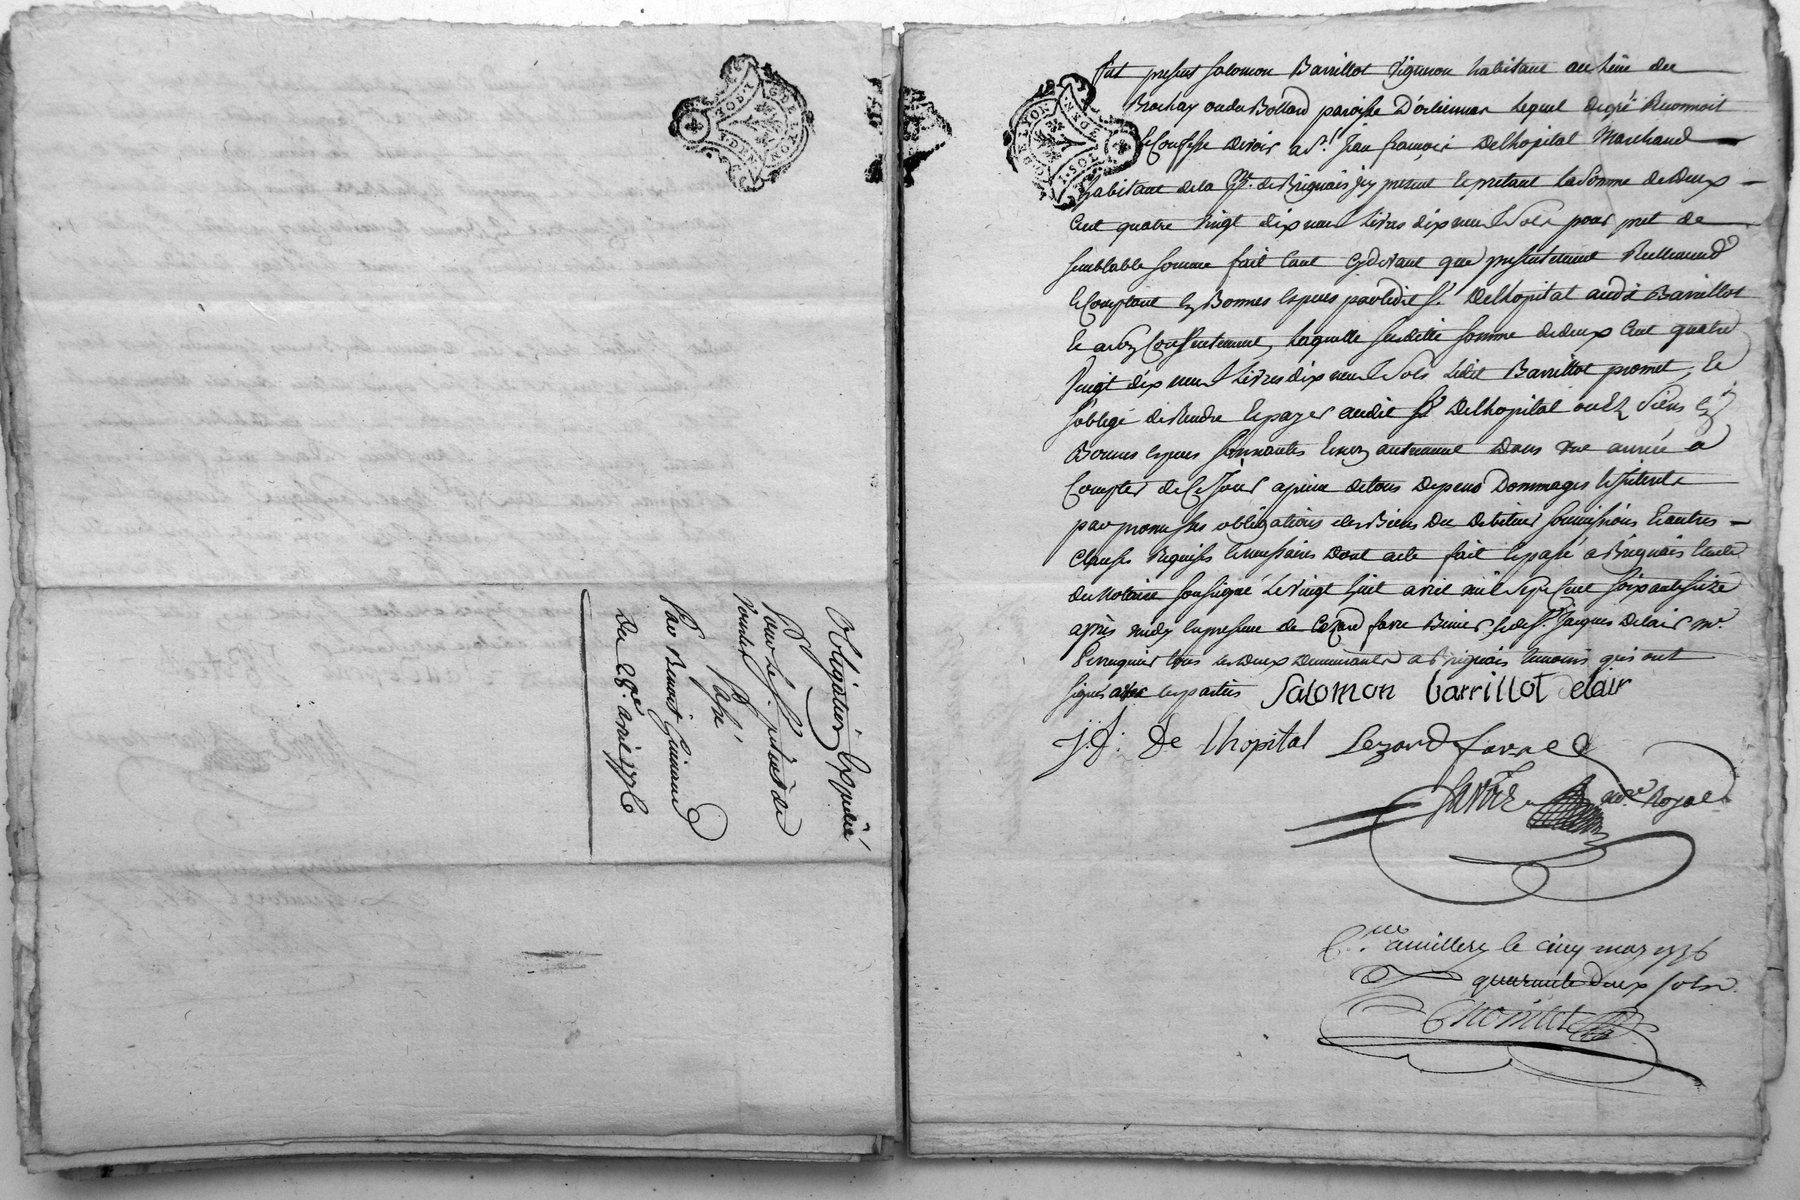 Obligation Expediée
Pour le Sr.
Passé
Par Benoit Guinand
Du 28e. avril 1776
GDE LYON
1.SOL
GEN
DEN
fut present Salomon Barrillot Vigneron habitant au lieu du
Brochay ou du Bollard paroisse D'orlienas lequel de gré Reconnoit
et Confesse devoir a Sr. Jean françois Delhopital Marchand
habitant de la psse. de Brignais icy present et pretant la Somme de Deux
Cent quatre Vingt dix neuf Livres dix neuf Sols pour pret de
semblable somme fait tant cydevant que presentement Reellement
et Comptant en Bonnes Especes par ledit Sr. Delhopital audit Barrillot
et a son Consentement, laquelle susditte somme de deux Cent quatre
Vingt dix neuf Livres dix neuf Sols Ledit Barrillot promet, et
s'oblige de Rendre et payer audit Sr. Delhopital ou Ez Siens En
Bonnes Especes sonnantes Et non autrement Dans une année a
Compter de Ce Jour a peine de tous Depens Dommages Et interets
par promesses obligations de Biens Du Debiteur soumissions Et autres
Clauses Requises Et necessaires Dont acte fait Et passé a Brignais Etude
du Notaire soussigné Le Vingt huit avril mil sept cent soixante seize
après midy En presence de Cezard favre Et de Sr. Jacques Delair Me.
Perruquier tous les Deux Demeurants a Brignais temoins qui ont
signés avec Les parties Salomon barrillot delair
j: f: De lhopital Cezard favre
nore. Royal
C.lle a millery le cinq may 1776
R quarante Deux sols